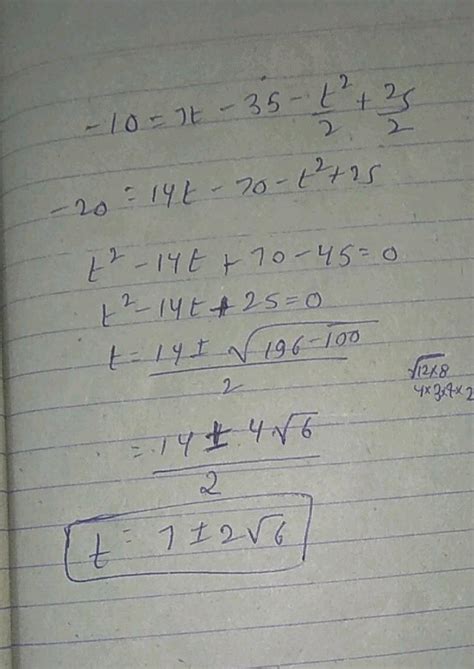 -10 = 7t - 35 - t²/2 + 25/2
-20 = 14t - 70 - t² + 25
t² - 14t + 70 - 45 = 0
t² - 14t + 25 = 0
t = 14 ± √(196 - 100) / 2
√12×8
4×3×4×2
= 14 ± 4√6 / 2
t = 7 ± 2√6